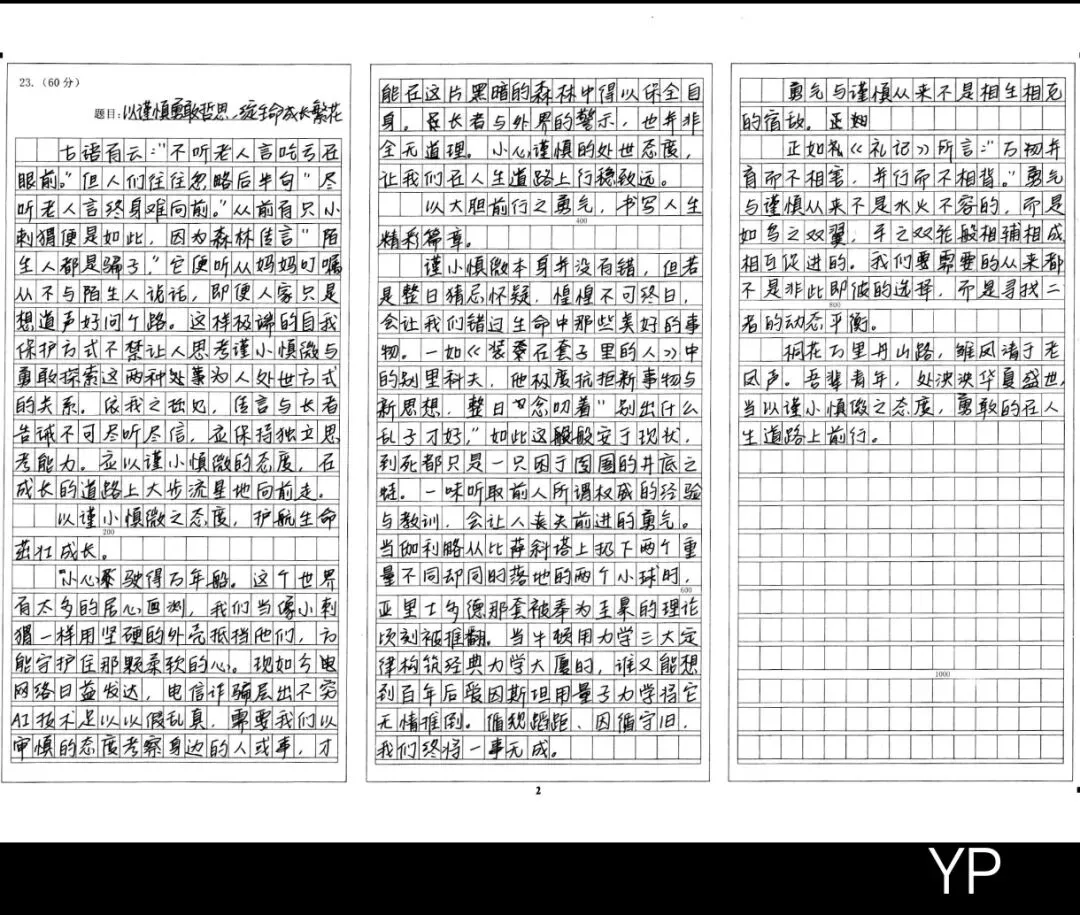 23.（60分）
题目：以谨慎勇敢哲思，绽生命成长繁花
古语有云："不听老人言吃亏在
眼前。"但人们往往忽略后半句"尽
听老人言终身难向前。"从前有只小
刺猬便是如此，因为森林传言"陌
生人都是骗子，"它便听从妈妈叮嘱
从不与陌生人说话，即便人家只是
想道声好问个路。这样极端的自我
保护方式不禁让人思考谨小慎微与
勇敢探索这两种处事为人处世方式
的关系。依我之拙见，传言与长者
告诫不可尽听尽信，应保持独立思
考能力。应以谨小慎微的态度，在
成长的道路上大步流星地向前走。
以谨小慎微之态度，护航生命
200
茁壮成长。
"小心驶得万年船。这个世界
有太多的居心叵测，我们当像小刺
猬一样用坚硬的外壳抵挡他们，方
能守护住那颗柔软的心。现如今电
网络日益发达，电信诈骗层出不穷
AI技术足以以假乱真，需要我们以
审慎的态度考察身边的人或事，才
能在这片黑暗的森林中得以保全自
身。长者与外界的警示，也并非
全无道理。小心谨慎的处世态度，
让我们在人生道路上行稳致远。
以大胆前行之勇气，书写人生
400
精彩篇章。
谨小慎微本身并没有错，但若
是整日猜忌怀疑，惶惶不可终日，
会让我们错过生命中那些美好的事
物。一如《装套在套子里的人》中
的别里科夫，他极度抗拒新事物与
新思想，整日念叨着"别出什么
乱子才好，"如此这般般安于现状，
到死都只是一只困于囹圄的井底之
蛙。一味听取前人所谓权威的经验
与教训，会让人丧失前进的勇气。
当伽利略从比萨斜塔上扔下两个重
量不同却同时落地的两个小球时，
600
亚里士多德那套被奉为圭臬的理论
顷刻被推翻。当牛顿用力学三大定
律构筑经典力学大厦时，谁又能想
到百年后爱因斯坦用量子力学将它
无情推倒。循规蹈距、因循守旧，
我们终将一事无成。
勇气与谨慎从来不是相生相克
的宿敌。正如
正如礼《礼记》所言："万物并
育而不相害，并行而不相背。"勇气
与谨慎从来不是水火不容的，而是
如鸟之双翼，车之双轮般相辅相成
相互促进的。我们要需要的从来都
不是非此即彼的选择，而是寻找二
800
者的动态平衡。
桐花万里丹山路，雏凤清于老
凤声。吾辈青年，处泱泱华夏盛世，
当以谨小慎微之态度，勇敢的在人
生道路上前行。
1000
2
YP